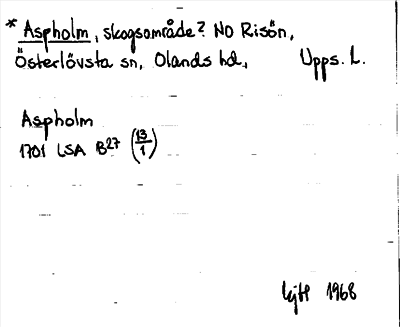 * Aspholm, skogsområde? NO Risön,
Österlövsta sn, Olands hd, Upps. L.
Aspholm
1701 LSA B27 (13/1)
1968